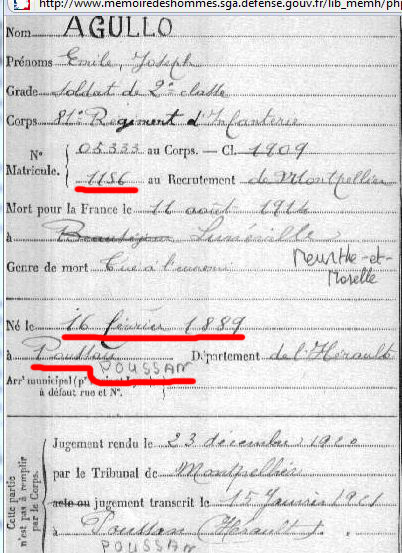 http://www.memoiredeshommes.sga.defense.gouv.fr/lib_memh/php
Nom AGULLO
Prénoms Emile, Joseph
Grade Soldat de 2e classe
Corps 81e Régiment d'Infanterie
No Matricule. 05333 au Corps. — Cl. 1909
1156 au Recrutement de Montpellier
Mort pour la France le 11 août 1914
à Lunéville
Meurthe-et-Moselle
Genre de mort Tué à l'ennemi
Né le 16 février 1889
à Poussan Département de l'Hérault
POUSSAN
Arrt municipal (pr
à défaut rue et No.
Cette partie n'est pas à remplir par le Corps.
Jugement rendu le 23 décembre 1920
par le Tribunal de Montpellier
acte ou jugement transcrit le 15 Janvier 1921
à Poussan (Hérault).
POUSSAN